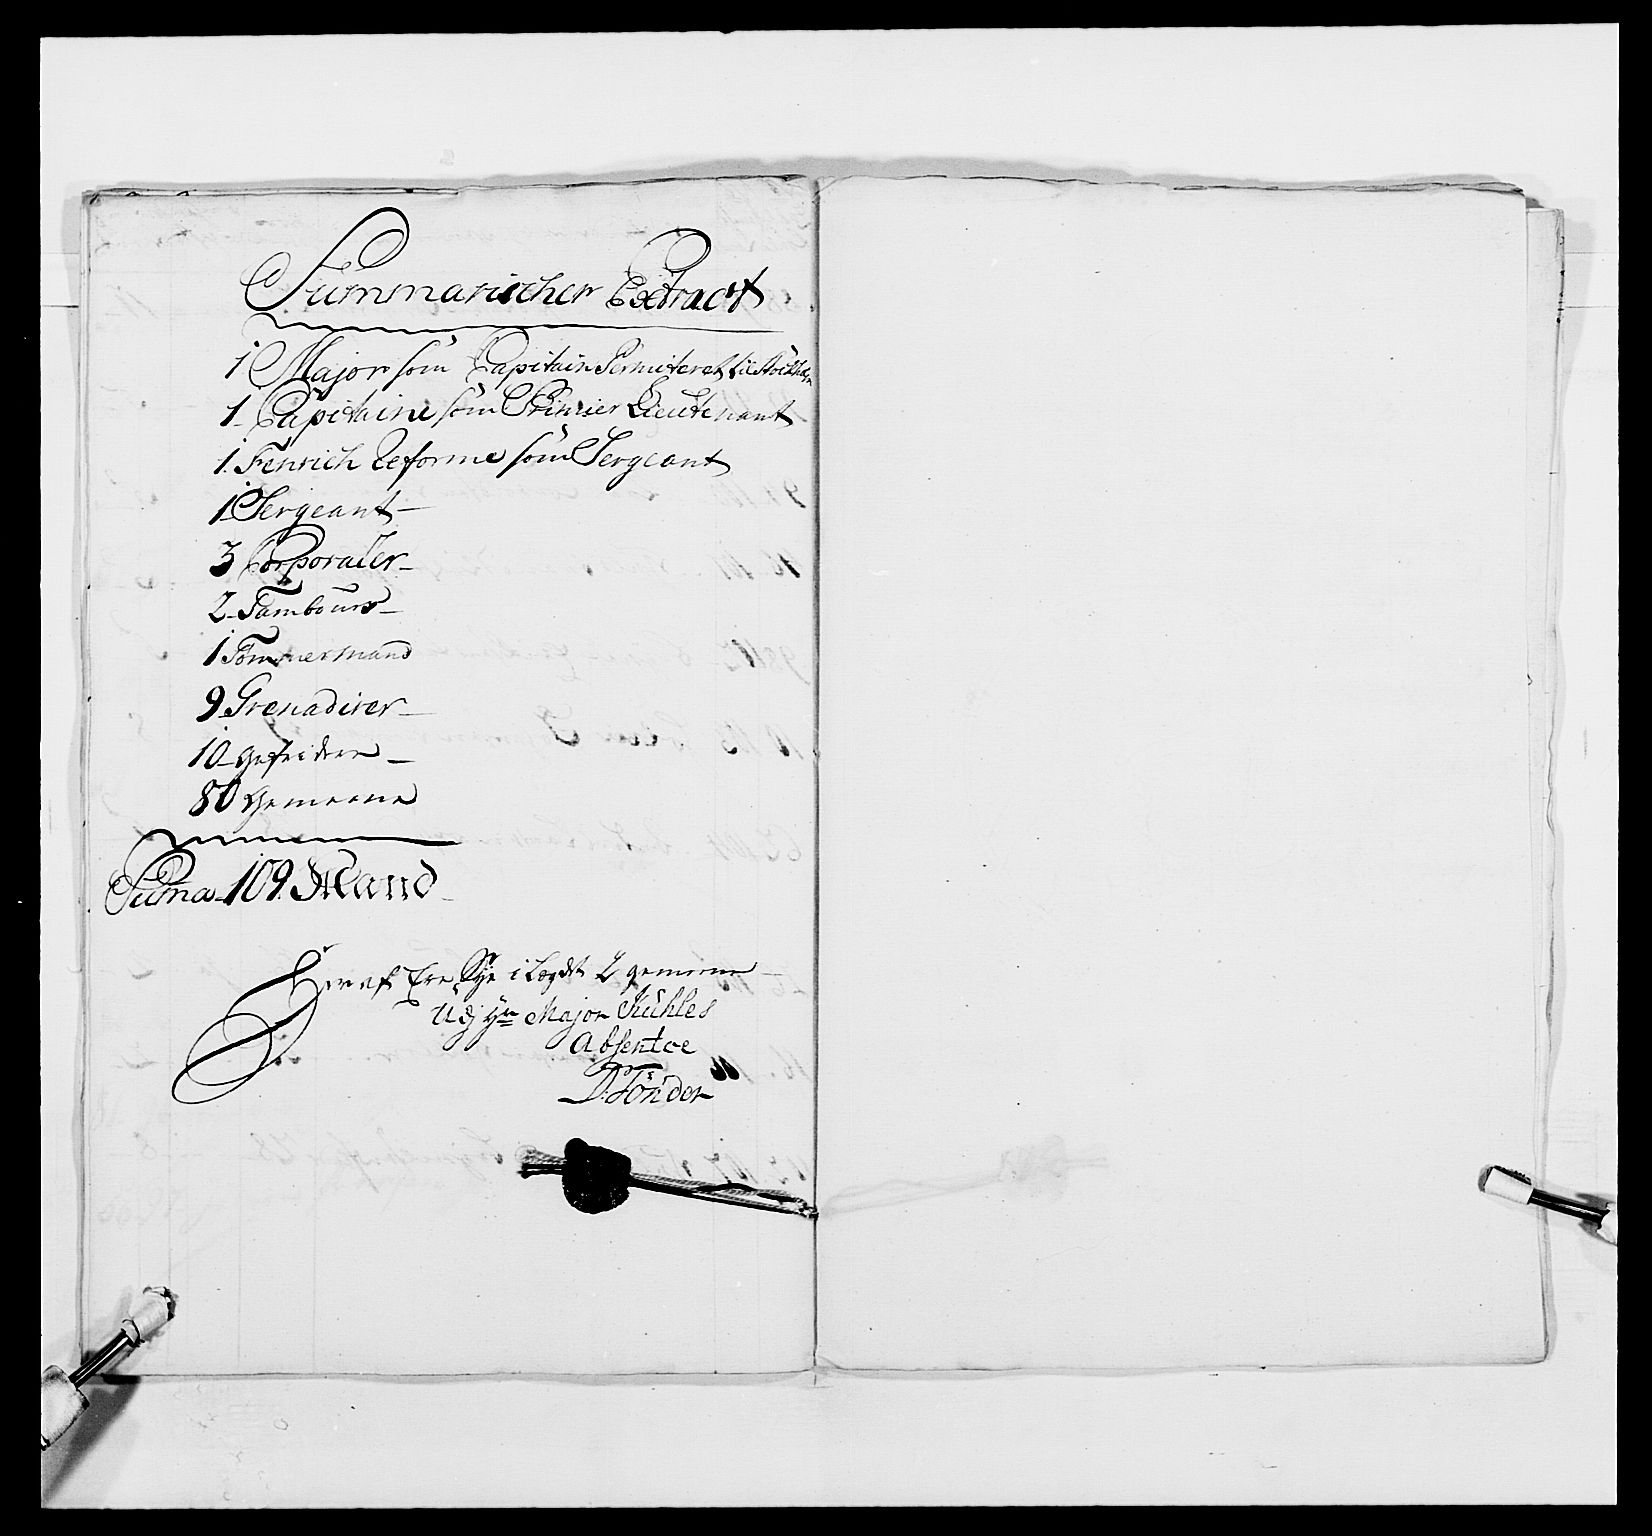 Summarischer Extract
1 Major som Capitain Permiteret til Stockholm
1 Capitaine som Primier Lieutenant
1. Fenrich Reforme som Sergeant
1 Sergeant
3 Corporaler
2 Tambours
1 Tömmermand
9 Grenadirer
10 gefridere
80 Gemeene
Suma 109. Mand
Her af Ere Sye i Legdet 2 gemeene
Udj Hr Major Kühles
Absentce
D: Tönder